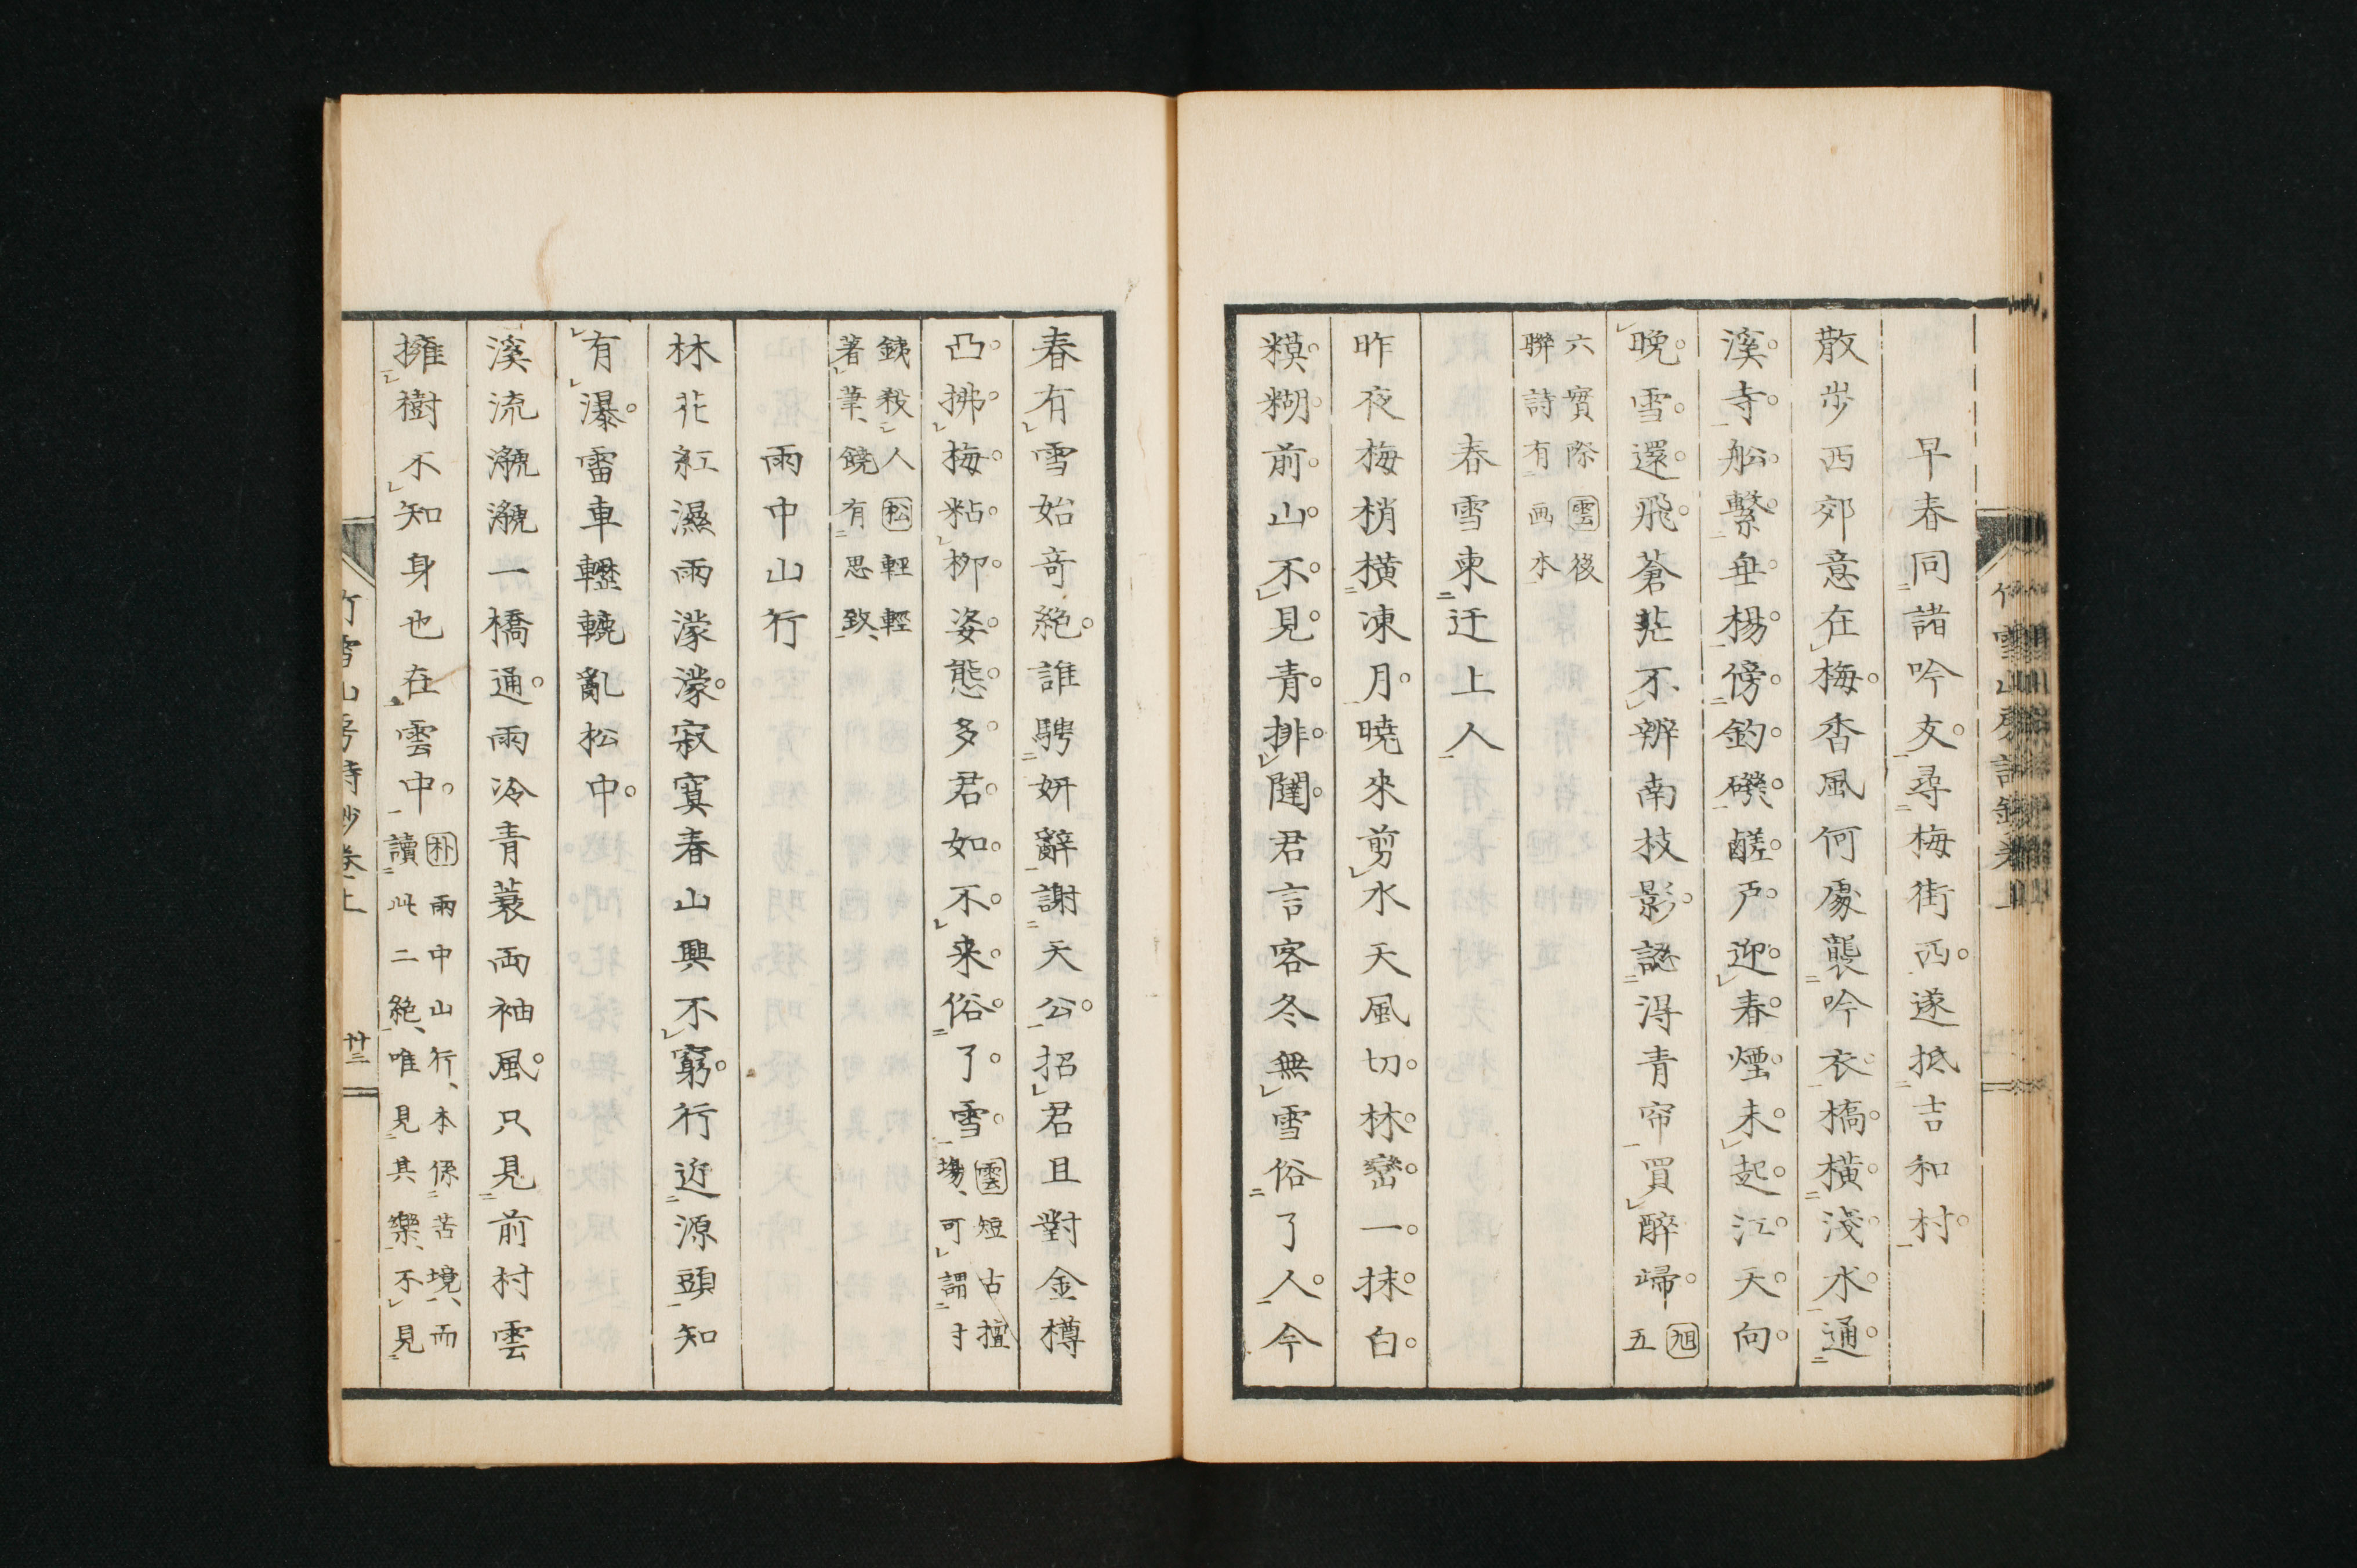 早春同諸吟友尋梅街西遂抵吉和村
散步西郊意在梅香風何處襲吟衣橋橫淺水通
溪寺船繫垂楊傍釣磯鹺戶迎春煙未起江天向
晚雪還飛蒼茫不辨南枝影認得青帘買醉歸 旭 五
六實際 雲 後
聯詩有画本
春雪柬迂上人
昨夜梅梢橫凍月曉來剪水天風切林巒一抹白
糢糊前山不見青排闥君言客冬無雪俗了人今
春有雪始奇絕誰騁妍辭謝天公招君且對金樽
凸拂梅粘柳姿態多君如不来俗了雪 雲 短古擅
場可謂寸
鉄殺人 松 輕輕
著筆饒有思致
雨中山行
林花紅濕雨濛濛寂寞春山興不窮行近源頭知
有瀑雷車轣轆亂松中
溪流㶁㶁一橋通雨冷青蓑両袖風只見前村雲
擁樹不知身也在雲中 朴 雨中山行本係苦境而
讀此二絕唯見其樂不見
竹雪山房詩鈔卷上
廿三